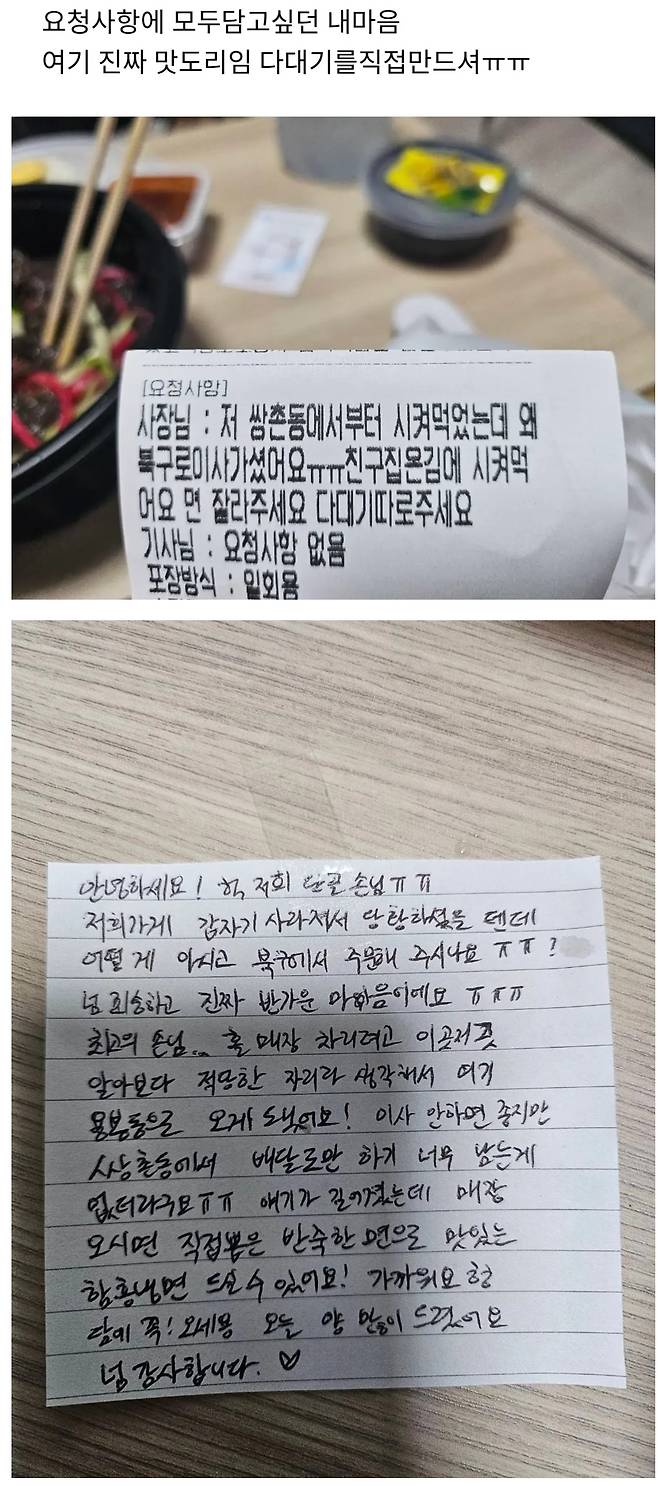 요청사항에 모두담고싶던 내마음
여기 진짜 맛도리임 다대기를직접만드셔ㅠㅠ
[요청사항]
사장님 : 저 쌍촌동에서부터 시켜먹었는데 왜
북구로이사가셨어요ㅠㅠ친구집온김에 시켜먹
어요 면 잘라주세요 다대기따로주세요
기사님 : 요청사항 없음
포장방식 : 일회용
안녕하세요! 헉 저희 단골 손님ㅠㅠ
저희가게 갑자기 사라져서 당황하셨을 텐데
어떻게 아시고 북구에서 주문해 주시나요 ㅠㅠ?
넘 죄송하고 진짜 반가운 마음이에요 ㅠㅠㅠ
최고의 손님.. 홀 매장 차리려고 이곳저곳
알아보다 적당한 자리라 생각해서 여기
용봉동으로 오게 됐어요! 이사 안하면 좋지만
쌍촌동에서 배달로만 하기 너무 남는게
없더라구요ㅠㅠ 얘기가 길어졌는데 매장
오시면 직접뽑은 반죽한 면으로 맛있는
함흥냉면 드실수 있어요! 가까워요 헝
담에 꼭! 오세용 오늘 양 많이 드렸어요
넘 감사합니다. ♡